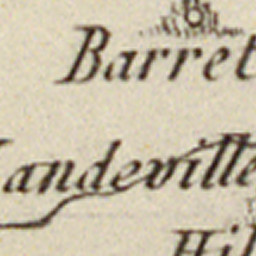 Barret
andeville
Hil